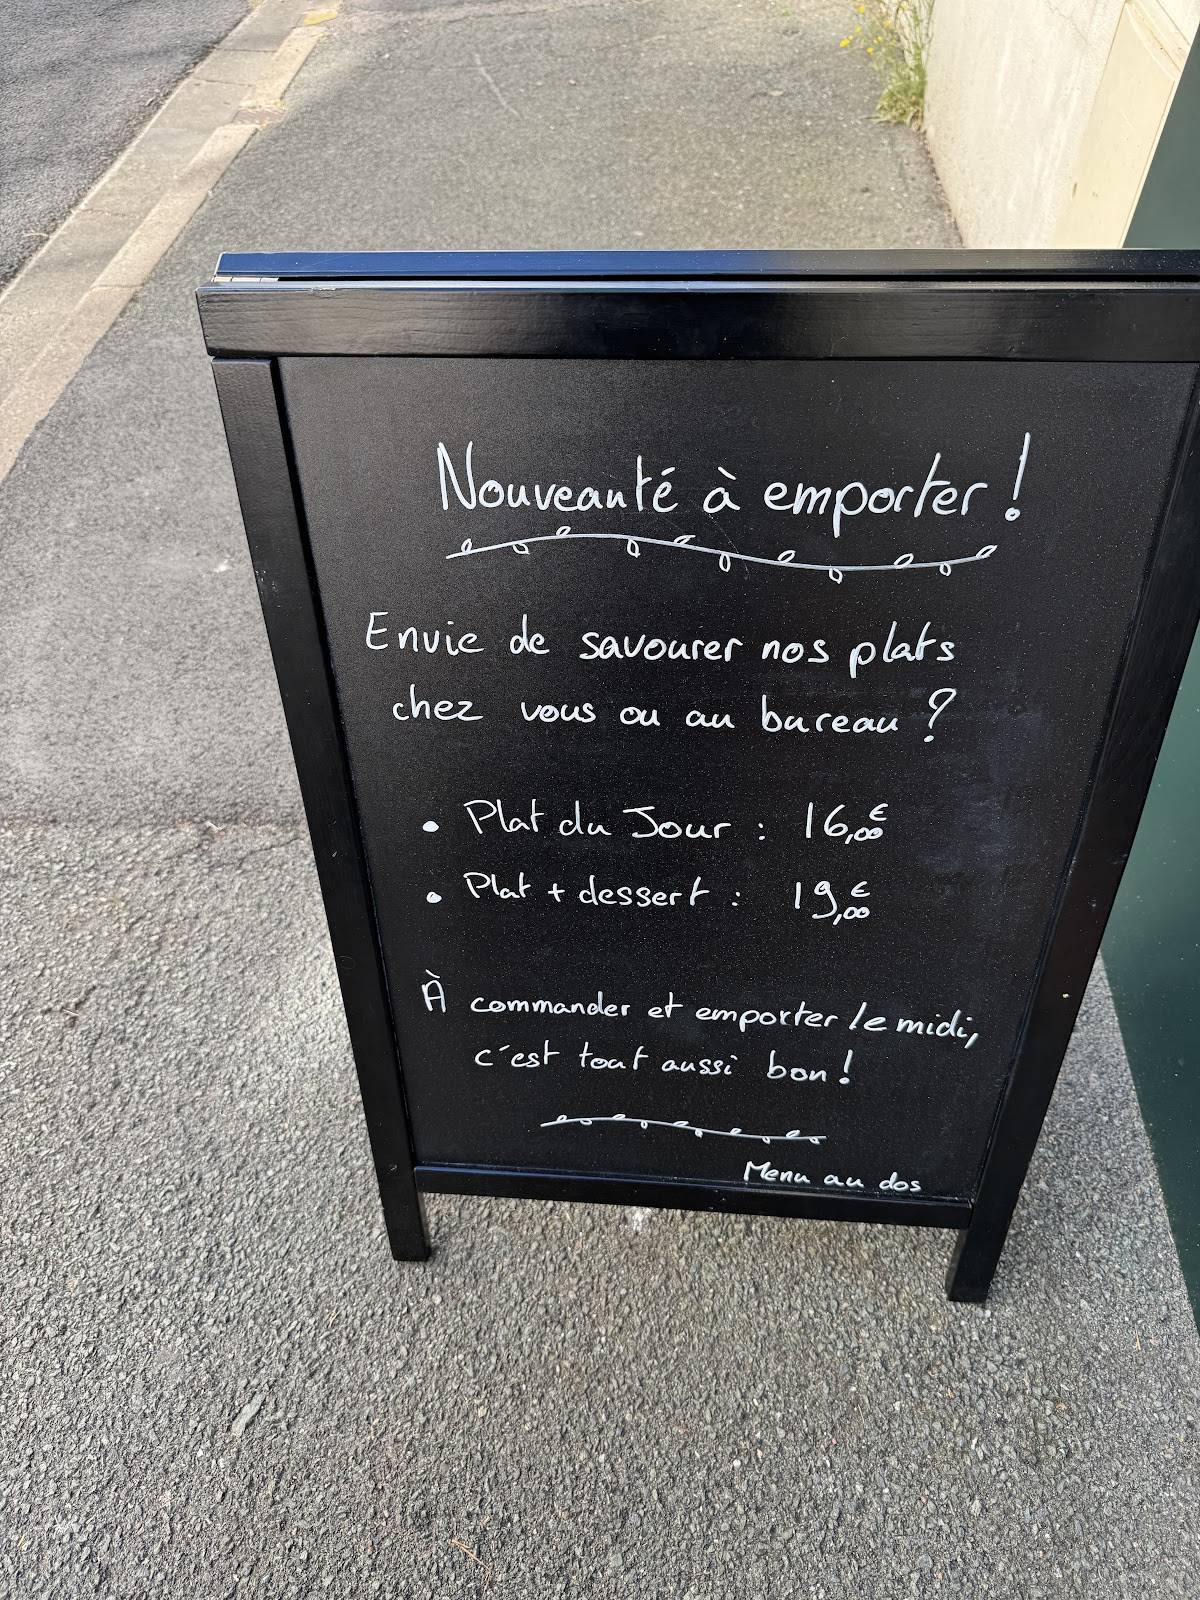 Nouveauté à emporter !
Envie de savourer nos plats
chez vous ou au bureau ?
• Plat du Jour : 16,00€
• Plat + dessert : 19,00€
À commander et emporter le midi,
c'est tout aussi bon !
Menu au dos